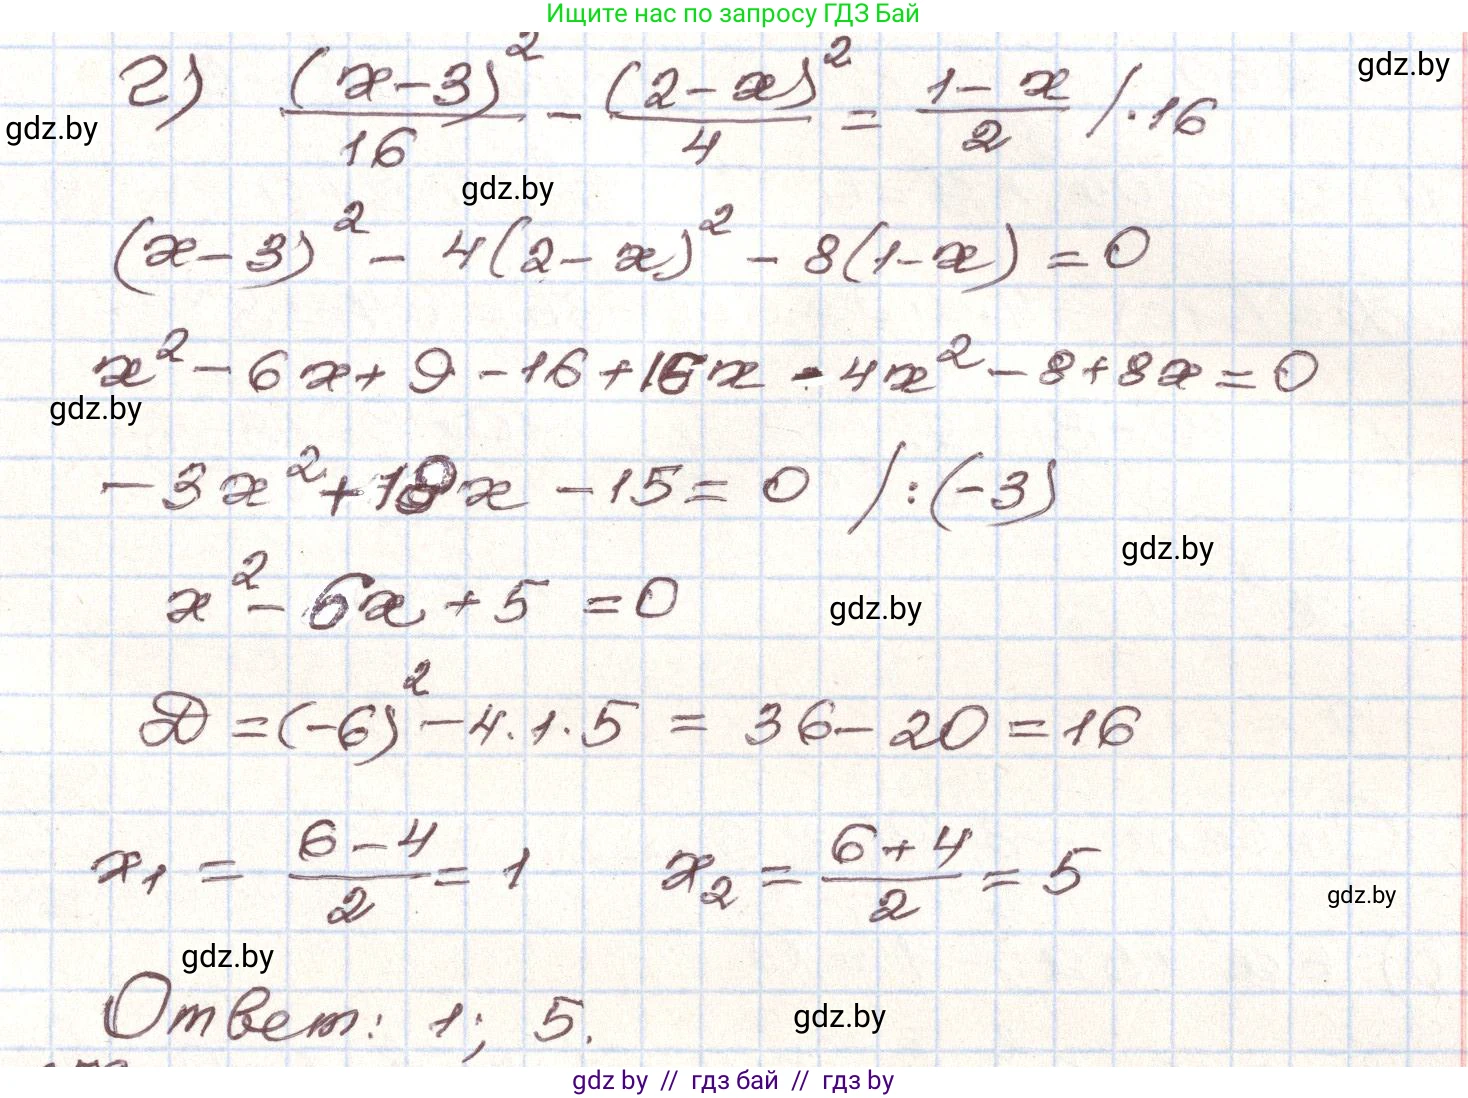 Ищите нас по запросу ГДЗ Бай
gdz.by
г) (x-3)²/16 - (2-x)²/4 = (1-x)/2 /·16
gdz.by
gdz.by
(x-3)² - 4(2-x)² - 8(1-x) = 0
x² - 6x + 9 - 16 + 16x - 4x² - 8 + 8x = 0
gdz.by
-3x² + 18x - 15 = 0 /:(-3)
gdz.by
x² - 6x + 5 = 0
gdz.by
Д = (-6)² - 4·1·5 = 36 - 20 = 16
x₁ = (6-4)/2 = 1 x₂ = (6+4)/2 = 5
gdz.by
gdz.by
Ответ: 1; 5.
gdz.by
gdz by // гдз бай // гдз by